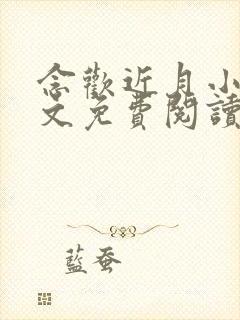 念歡近月小
文免費閱讀
藍蚕